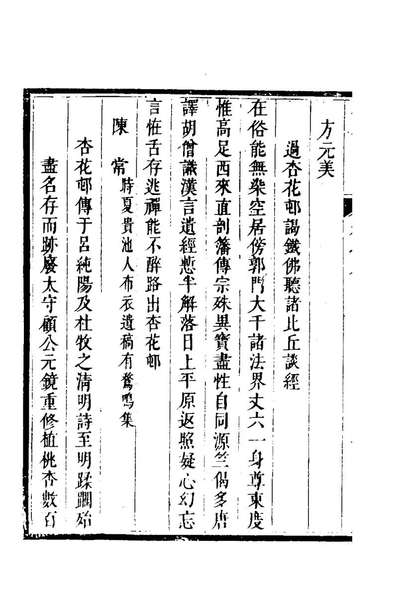 方元美
過杏花邨謁鐵佛聽諸比丘談經
在俗能無染空居傍郭門大千諸法界丈六一身尊東度
惟高足西來直剖藩傳宗殊異寶盡性自同源竺偈多唐
譯胡僧識漢言遺經慙半解落日上平原返照疑心幻忘
言怪舌存逃禪能不醉路出杏花邨
陳常時夏貴池人布衣遺稿有鶩鳴集
杏花邨傳于呂純陽及杜牧之清明詩至明蹂躪殆
盡名存而跡廢太守顧公元鏡重修植桃杏數百